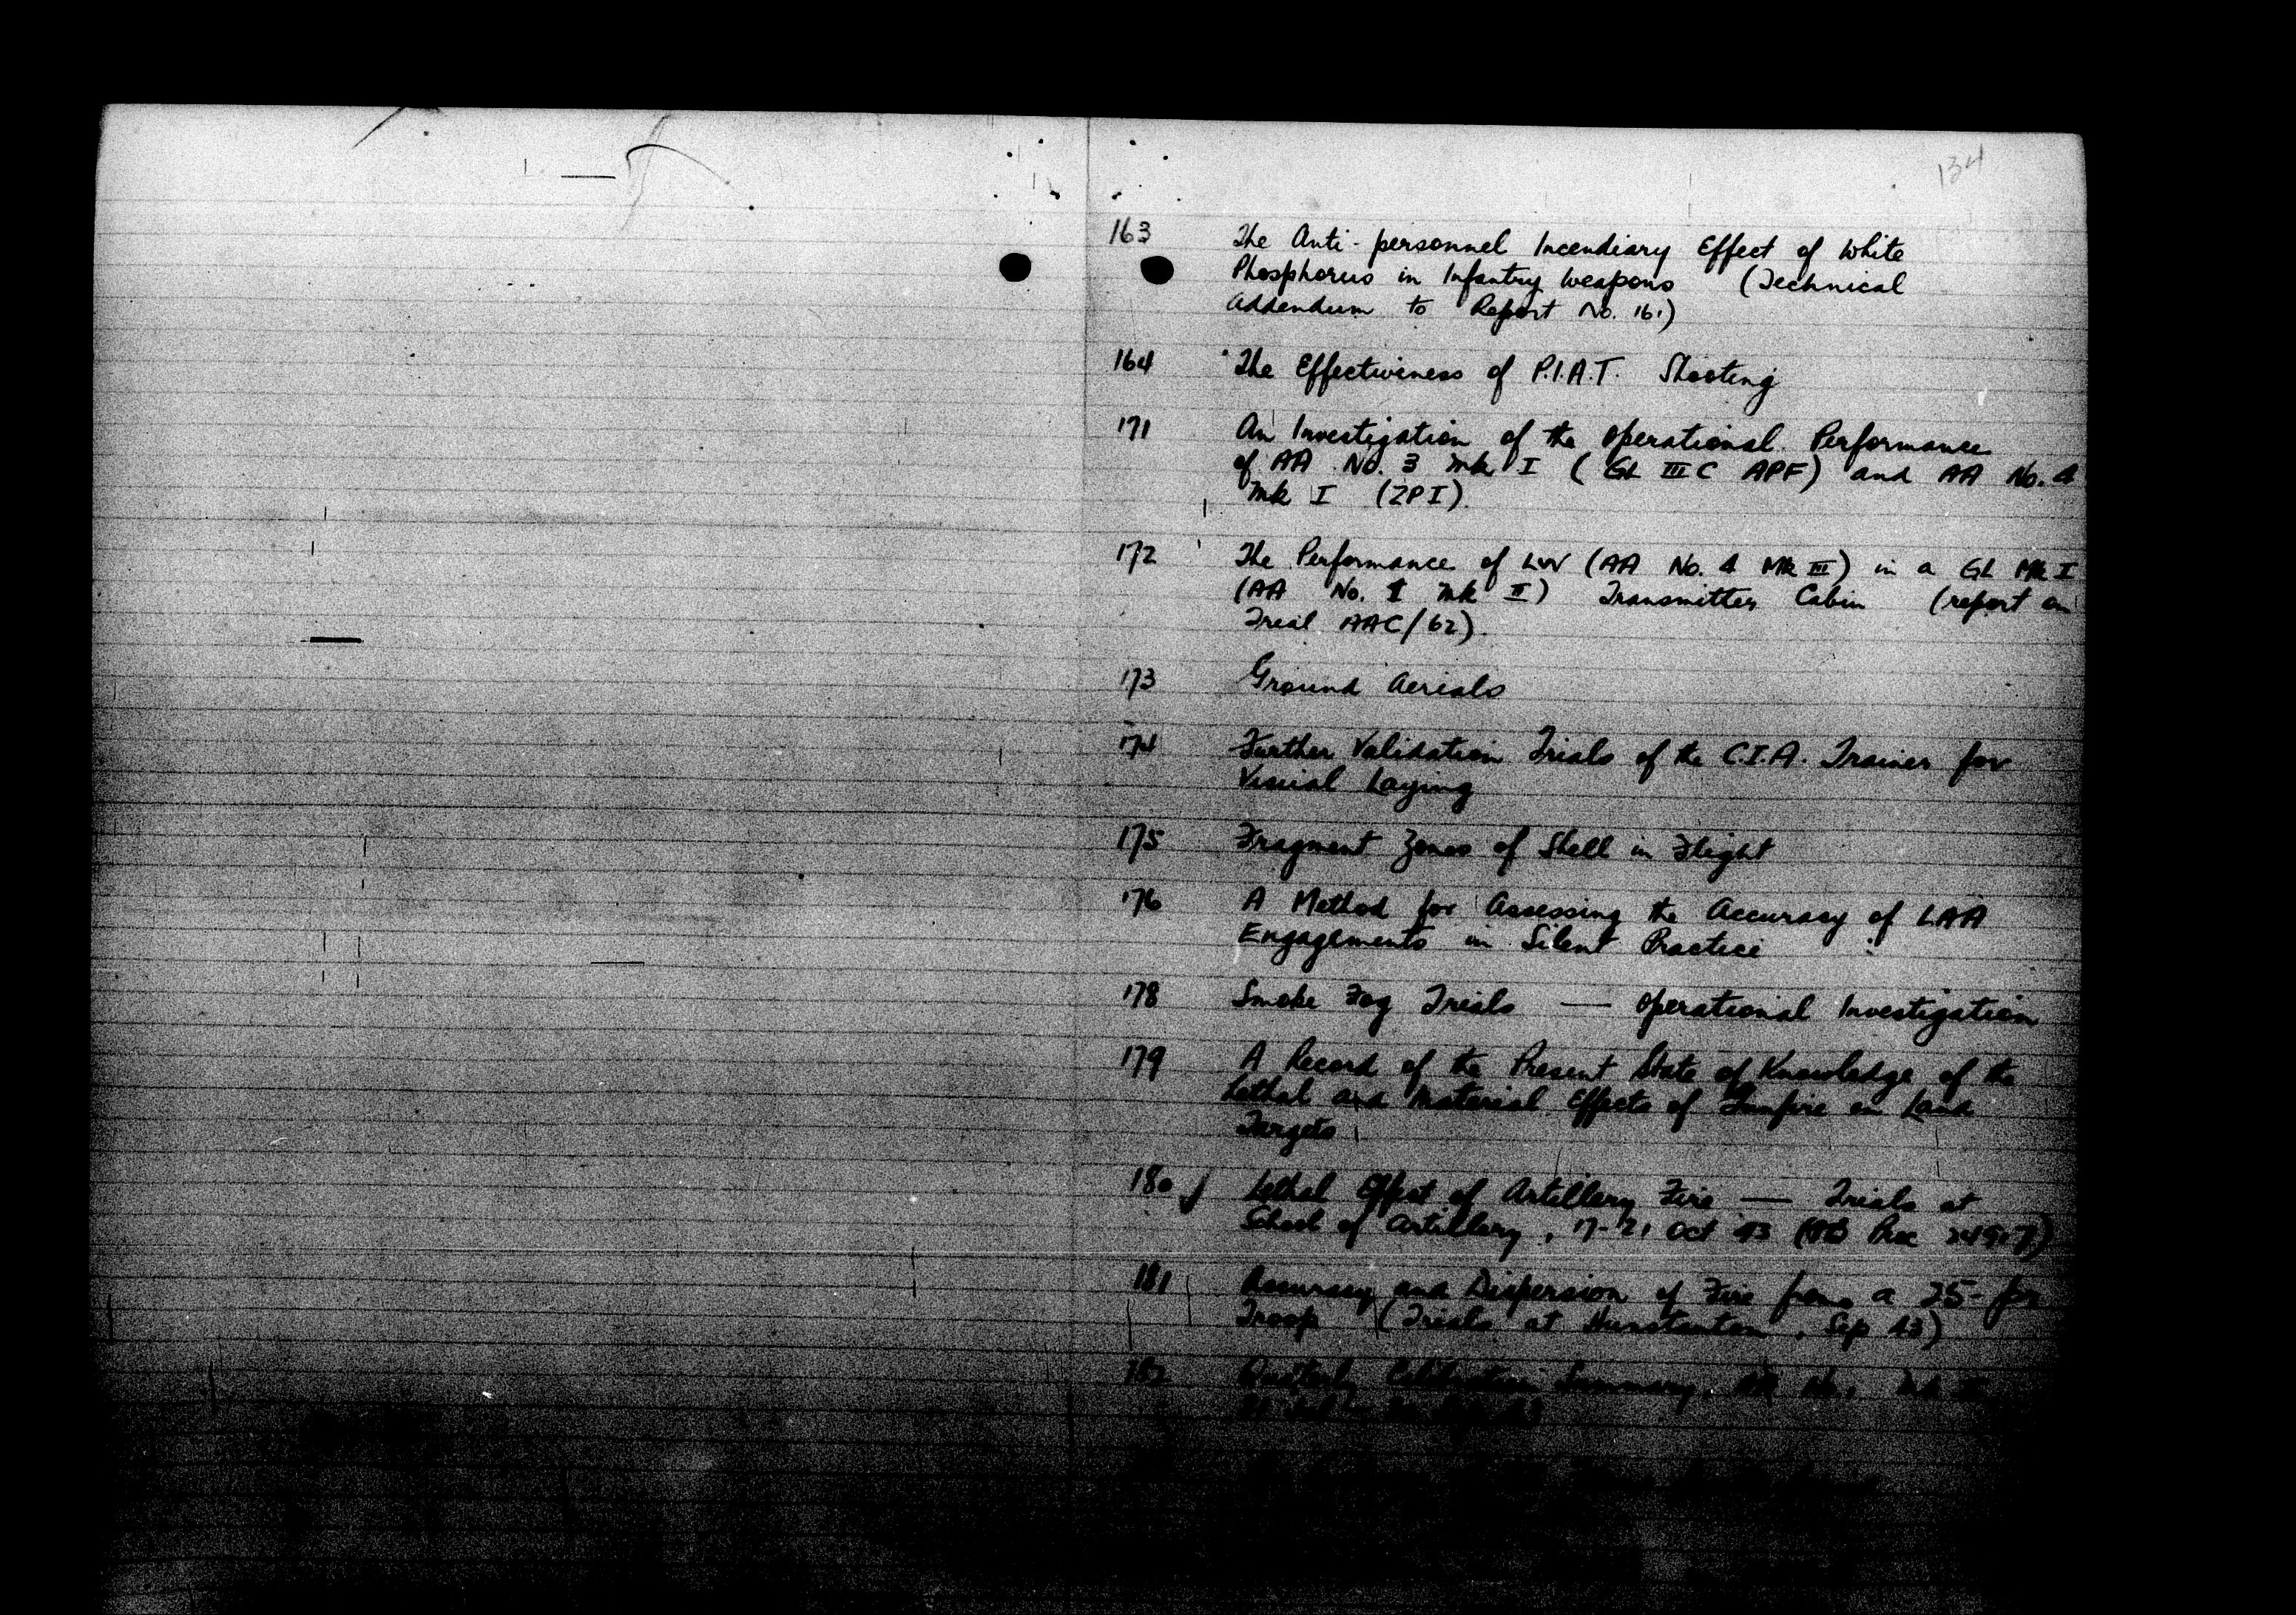 134
163 The Anti-personnel Incendiary Effect of White
Phosphorus in Infantry Weapons (Technical
Addendum to Report No. 161)
164 The Effectiveness of P.I.A.T. Shooting
171 An Investigation of the Operational Performance
of AA No. 3 Mk I (GL III C APF) and AA No. 4
Mk I (ZPI).
172 The Performance of LW (AA No. 4 Mk III) in a GL Mk I
(AA No. 1 Mk II) Transmitter Cabin (report on
Trial AAC/62).
173 Ground Aerials
174 Further Validation Trials of the C.I.A. Trainer for
Visual Laying
175 Fragment Zones of Shell in Flight
176 A Method for Assessing the Accuracy of LAA
Engagements in Silent Practice
178 Smoke Fog Trials — Operational Investigation
179 A Record of the Present State of Knowledge of the
Lethal and Material Effects of Gunfire on Land
Targets
180 Lethal Effect of Artillery Fire — Trials at
School of Artillery, 17-21 Oct 43 Proc
181 Accuracy and Dispersion of Fire from a 25-pr
Troop (Trials at Hunstanton, Sep 43)
182 Quarterly Calibration Summary,